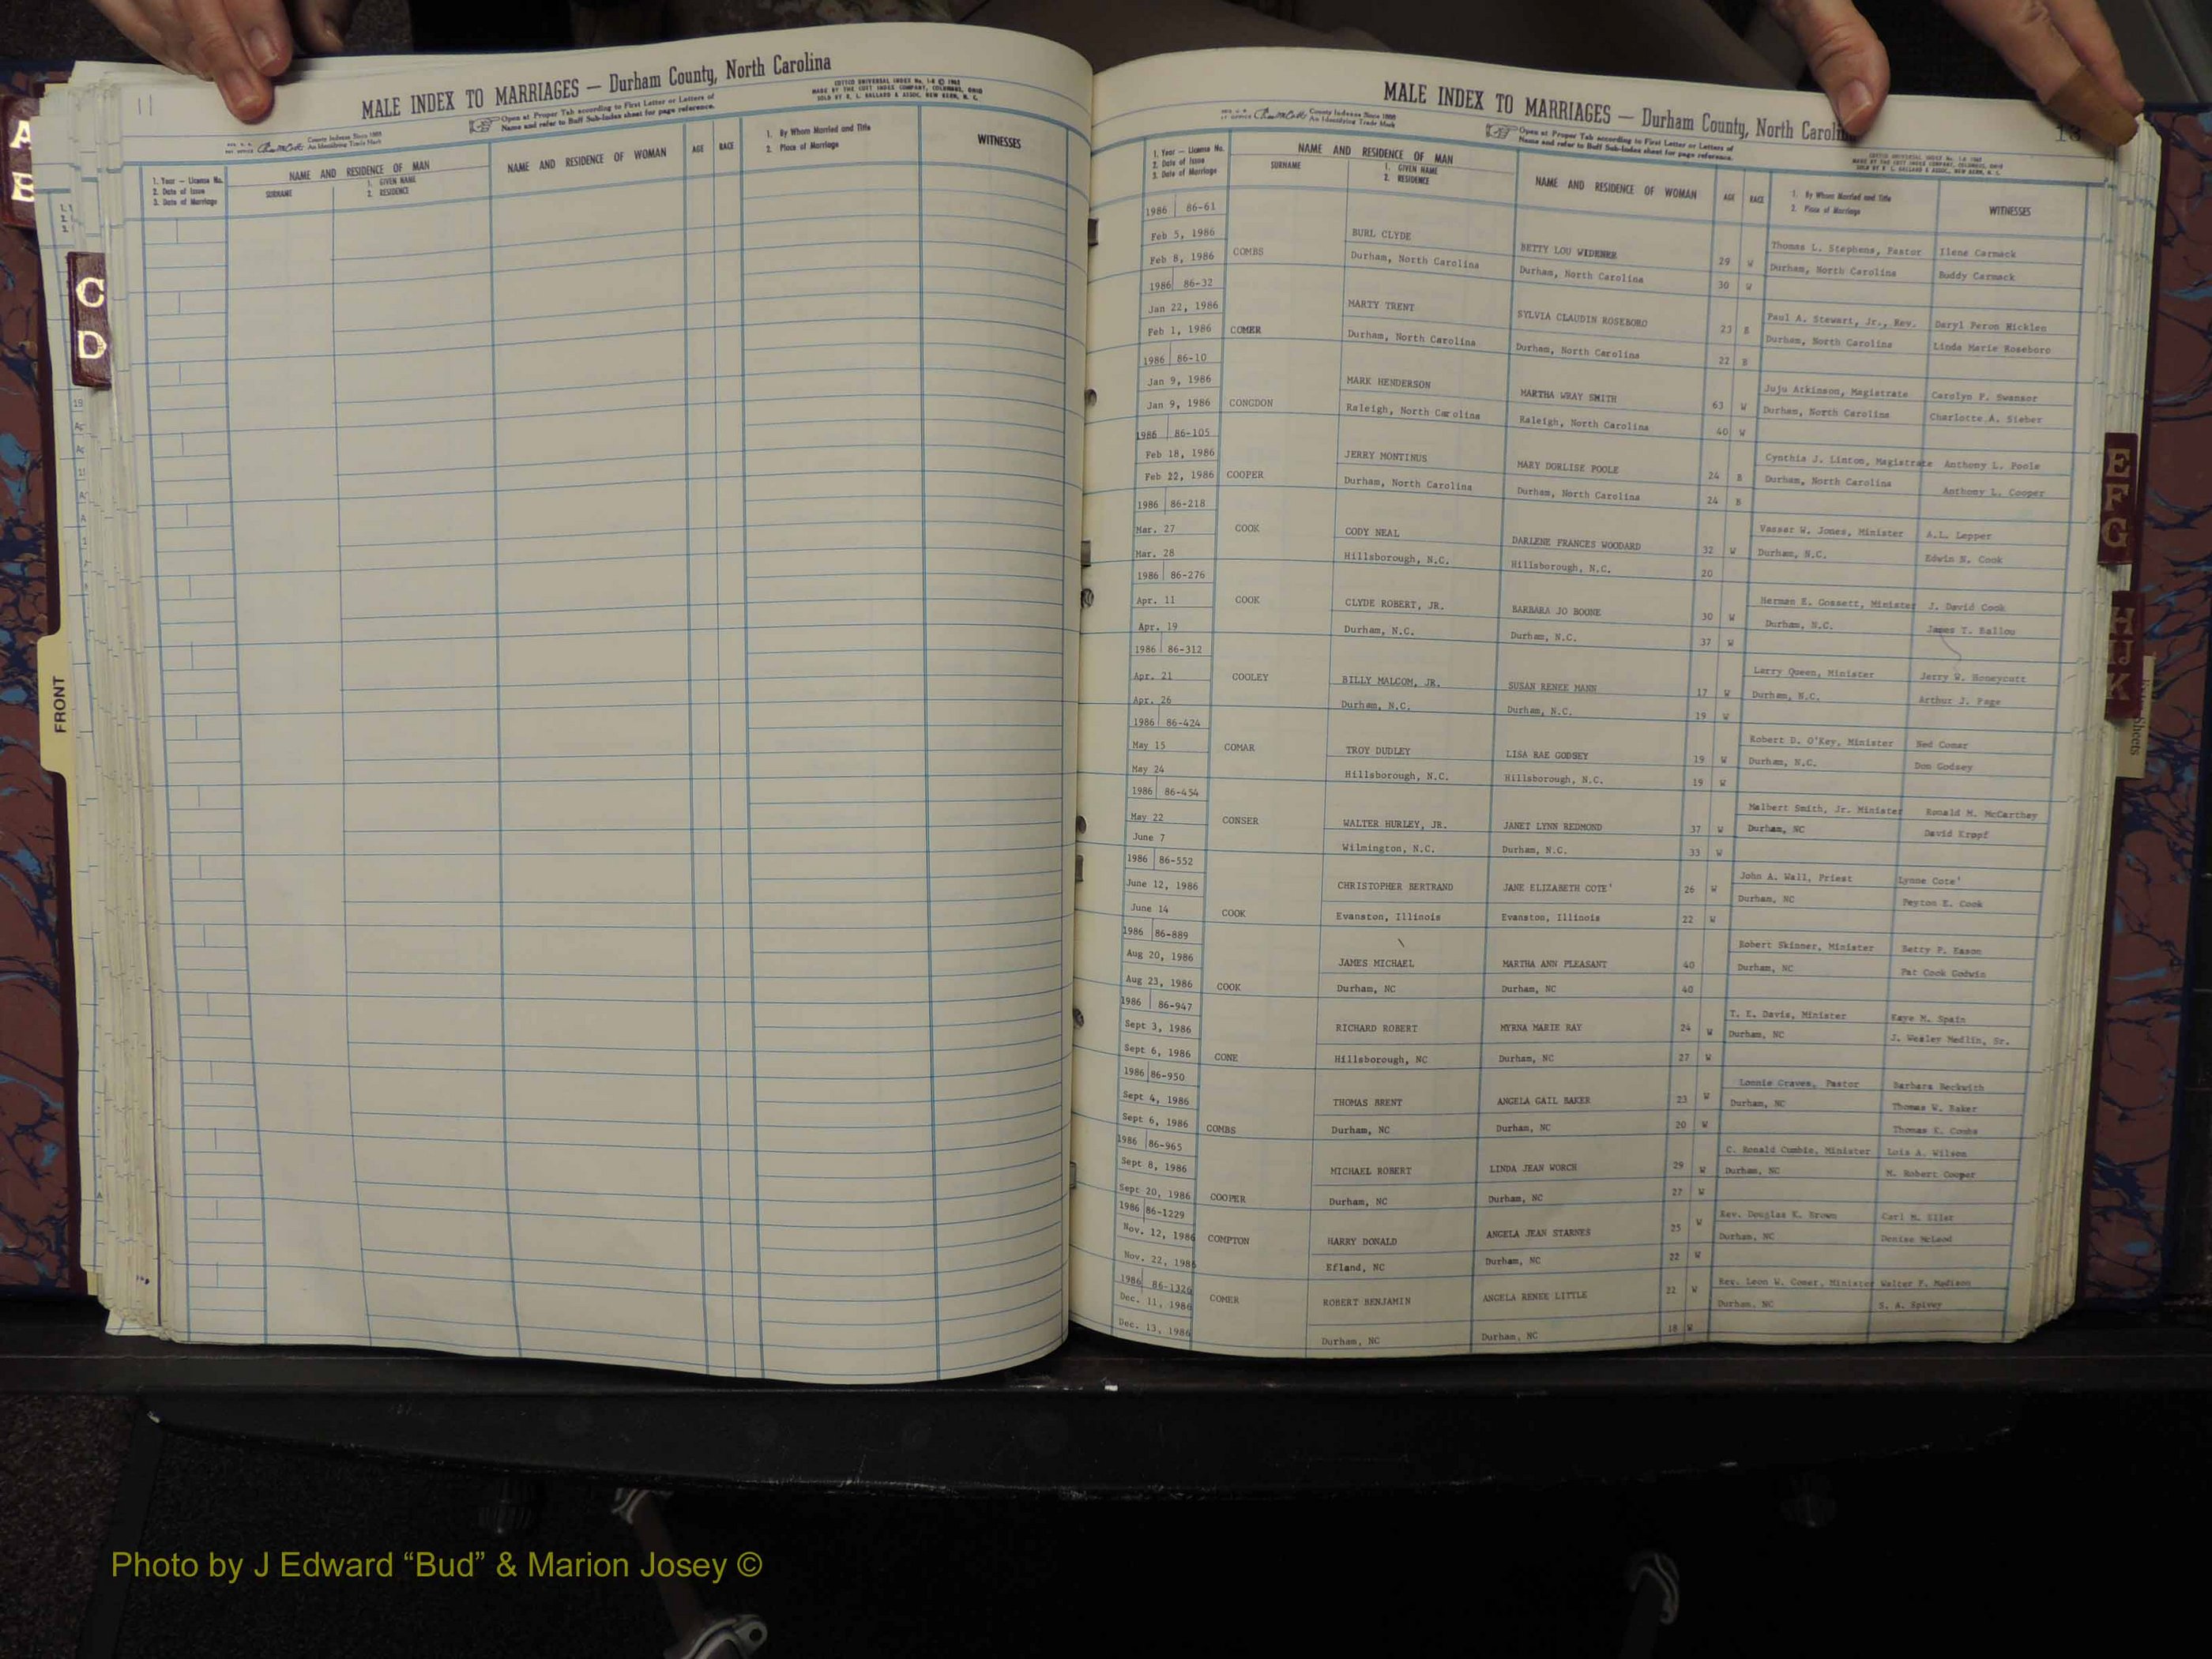 A
B
C
D
FRONT
11
MALE INDEX TO MARRIAGES — Durham County, North Carolina
Open at Proper Tab according to First Letter or Letters of
Name and refer to Buff Sub-Index sheet for page reference.
COTT'S UNIVERSAL INDEX No. 1-8 © 1962
MADE BY THE COTT INDEX COMPANY, COLUMBUS, OHIO
SOLD BY E. L. BALLARD & ASSOC. NEW BERN, N. C.
County Indexes Since 1888
An Identifying Trade Mark
1. Year — License No.
2. Date of Issue
3. Date of Marriage
NAME AND RESIDENCE OF MAN
SURNAME
1. GIVEN NAME
2. RESIDENCE
NAME AND RESIDENCE OF WOMAN
AGE
RACE
1. By Whom Married and Title
2. Place of Marriage
WITNESSES
MALE INDEX TO MARRIAGES — Durham County, North Carolin
County Indexes Since 1888
An Identifying Trade Mark
Open at Proper Tab according to First Letter or Letters of
Name and refer to Buff Sub-Index sheet for page reference.
1. Year — License No.
2. Date of Issue
3. Date of Marriage
NAME AND RESIDENCE OF MAN
SURNAME
1. GIVEN NAME
2. RESIDENCE
NAME AND RESIDENCE OF WOMAN
AGE
RACE
1. By Whom Married and Title
2. Place of Marriage
WITNESSES
1986 86-61
Feb 5, 1986 BURL CLYDE BETTY LOU WIDENER 29 W Thomas L. Stephens, Pastor Ilene Carmack
Feb 8, 1986 COMBS Durham, North Carolina Durham, North Carolina 30 W Durham, North Carolina Buddy Carmack
1986 86-32
Jan 22, 1986 MARTY TRENT SYLVIA CLAUDIN ROSEBORO 23 B Paul A. Stewart, Jr., Rev. Daryl Peron Nicklen
Feb 1, 1986 COMER Durham, North Carolina Durham, North Carolina 22 B Durham, North Carolina Linda Marie Roseboro
1986 86-10
Jan 9, 1986 MARK HENDERSON MARTHA WRAY SMITH 63 W Juju Atkinson, Magistrate Carolyn P. Swanson
Jan 9, 1986 CONGDON Raleigh, North Carolina Raleigh, North Carolina 40 W Durham, North Carolina Charlotte A. Sieber
1986 86-105
Feb 18, 1986 JERRY MONTINUS MARY DORLISE POOLE 24 B Cynthia J. Linton, Magistrate Anthony L. Poole
Feb 22, 1986 COOPER Durham, North Carolina Durham, North Carolina 24 B Durham, North Carolina Anthony L. Cooper
1986 86-218
Mar. 27 COOK CODY NEAL DARLENE FRANCES WOODARD 32 W Vassar W. Jones, Minister A.L. Lepper
Mar. 28 Hillsborough, N.C. Hillsborough, N.C. 20 Durham, N.C. Edwin N. Cook
1986 86-276
Apr. 11 COOK CLYDE ROBERT, JR. BARBARA JO BOONE 30 W Herman E. Gossett, Minister J. David Cook
Apr. 19 Durham, N.C. Durham, N.C. 37 W Durham, N.C. James T. Ballou
1986 86-312
Apr. 21 COOLEY BILLY MALCOM, JR. SUSAN RENEE MANN 17 W Larry Queen, Minister Jerry W. Honeycutt
Apr. 26 Durham, N.C. Durham, N.C. 19 W Durham, N.C. Arthur J. Page
1986 86-424
May 15 COMAR TROY DUDLEY LISA RAE GODSEY 19 W Robert D. O'Key, Minister Ned Comar
May 24 Hillsborough, N.C. Hillsborough, N.C. 19 W Durham, N.C. Don Godsey
1986 86-454
May 22 CONSER WALTER HURLEY, JR. JANET LYNN REDMOND 37 W Malbert Smith, Jr. Minister Ronald M. McCarthey
June 7 Wilmington, N.C. Durham, N.C. 33 W Durham, NC David Kropf
1986 86-552
June 12, 1986 CHRISTOPHER BERTRAND JANE ELIZABETH COTE' 26 W John A. Wall, Priest Lynne Cote'
June 14 COOK Evanston, Illinois Evanston, Illinois 22 W Durham, NC Peyton E. Cook
1986 86-889
Aug 20, 1986 JAMES MICHAEL MARTHA ANN PLEASANT 40 Robert Skinner, Minister Betty P. Eason
Aug 23, 1986 COOK Durham, NC Durham, NC 40 Durham, NC Pat Cook Godwin
1986 86-947
Sept 3, 1986 RICHARD ROBERT MYRNA MARIE RAY 24 W T. E. Davis, Minister Kaye M. Spain
Sept 6, 1986 CONE Hillsborough, NC Durham, NC 27 W Durham, NC J. Wesley Medlin, Sr.
1986 86-950
Sept 4, 1986 THOMAS BRENT ANGELA GAIL BAKER 23 W Lonnie Graves, Pastor Barbara Beckwith
Sept 6, 1986 COMBS Durham, NC Durham, NC 20 W Durham, NC Thomas W. Baker
Thomas K. Combs
1986 86-965
Sept 8, 1986 MICHAEL ROBERT LINDA JEAN WORCH 29 W C. Ronald Cumbie, Minister Lois A. Wilson
Sept 20, 1986 COOPER Durham, NC Durham, NC 27 W Durham, NC M. Robert Cooper
1986 86-1229
Nov. 12, 1986 COMPTON HARRY DONALD ANGELA JEAN STARNES 25 W Rev. Douglas K. Brown Carl M. Eller
Nov. 22, 1986 Efland, NC Durham, NC 22 W Durham, NC Denise McLeod
1986 86-1326
Dec. 11, 1986 COMER ROBERT BENJAMIN ANGELA RENEE LITTLE 22 W Rev. Leon W. Comer, Minister Walter P. Madison
Dec. 13, 1986 Durham, NC Durham, NC 18 W Durham, NC S. A. Spivey
E
F
G
H
IJ
K
Sheets
Photo by J Edward “Bud” & Marion Josey ©